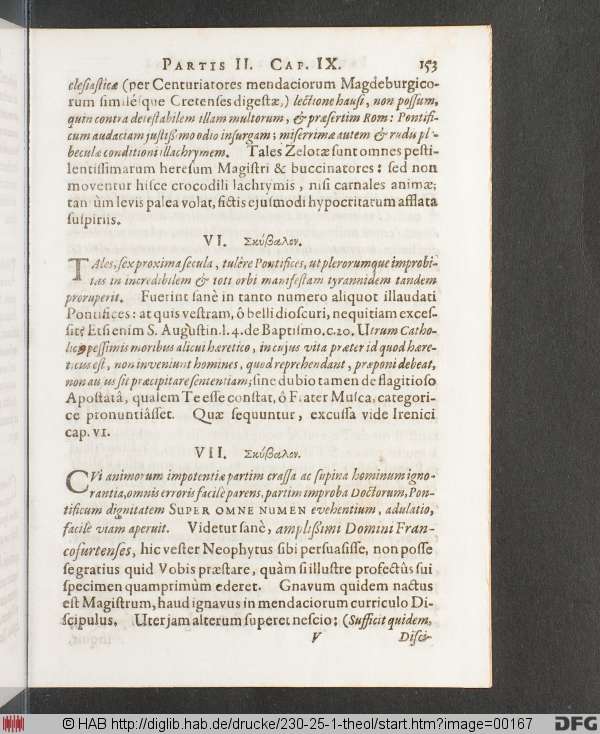 PARTIS II. CAP. IX. 153
clesiasticæ (per Centuriatores mendaciorum Magdeburgico-
rum simulésque Cretenses digestæ,) lectione hausi, non possum,
quin contra detestabilem illam multorum, & præsertim Rom: Pontifi-
cum audaciam justissimo odio insurgam; miserrimæ autem & rudu pl-
beculæ conditioni illachrymem. Tales Zelotæ sunt omnes pesti-
lentissimarum heresum Magistri & buccinatores: sed non
moventur hisce crocodili lachrymis, nisi carnales animæ;
tan ùm levis palea volat, fictis ejusmodi hypocritarum afflata
suspiriis.
VI. Σκύβαλον.
TAles, sex proxima secula, tulêre Pontifices, ut plerorumque improbi-
tas in incredibilem & toti orbi manifestam tyrannidem tandem
proruperit. Fuerint sanè in tanto numero aliquot illaudati
Pontifices: at quis vestram, ô belli dioscuri, nequitiam exces-
sit? Etsi enim S. Augustin. l. 4. de Baptismo. c. 20. Utrum Catho-
licū pessimis moribus alicui hæretico, in cujus vita præter id quod hære-
ticus est, non inveniunt homines, quod reprehendant, præponi debeat,
non au us sit præcipitare sententiam; sine dubio tamen de flagitioso
Apostatâ, qualem Te esse constat, ô Frater Musca, categori-
ce pronuntiâsset. Quæ sequuntur, excussa vide Irenici
cap. VI.
VII. Σκύβαλον.
CVi animorum impotentiæ partim crassa ac supina hominum igno-
rantia, omnis erroris facilè parens, partim improba Doctorum, Pon-
tificum dignitatem SUPER OMNE NUMEN evehentium, adulatio,
facilè viam aperuit. Videtur sanè, amplissimi Domini Fran-
cofurtenses, hic vester Neophytus sibi persuasisse, non posse
se gratius quid Vobis præstare, quàm si illustre profectûs sui
specimen quamprimùm ederet. Gnavum quidem nactus
est Magistrum, haud ignavus in mendaciorum curriculo Di-
scipulus. Uter jam alterum superet nescio: (Sufficit quidem,
V Disci-
© HAB http://diglib.hab.de/drucke/230-25-1-theol/start.htm?image=00167
DFG